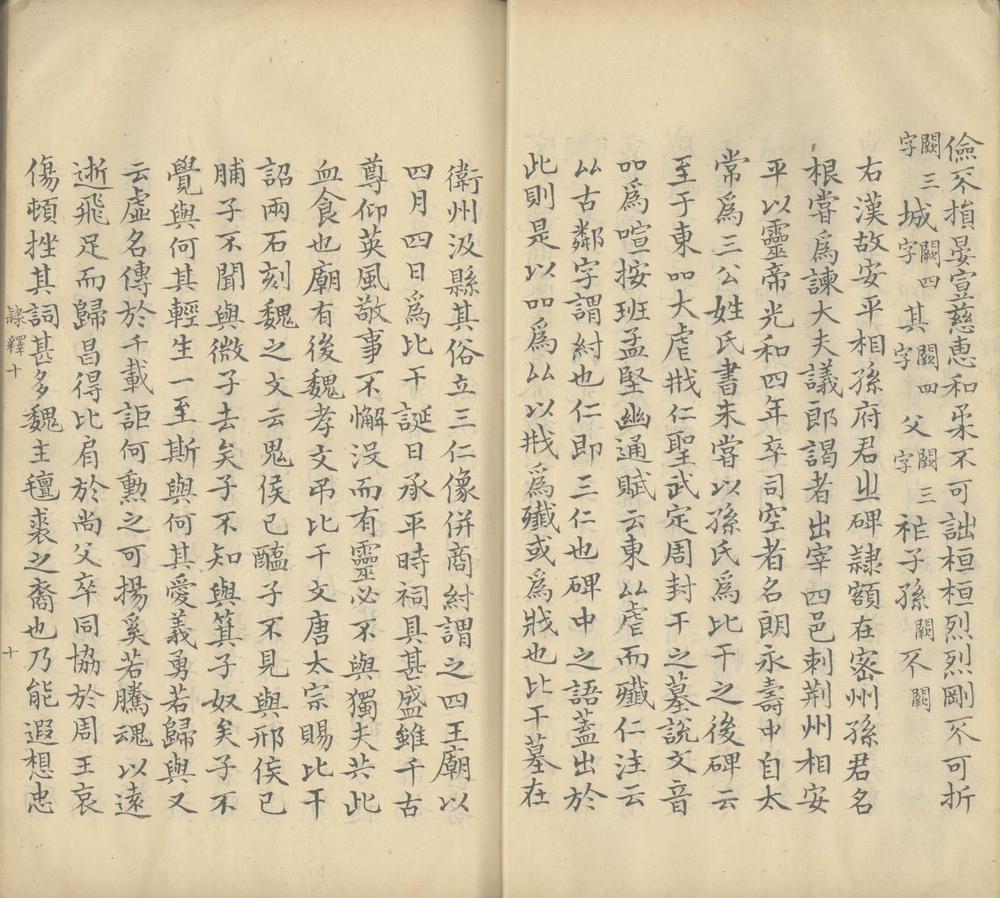 儉不損晏宣慈惠和柔不可詘桓桓烈烈剛不可折
闕三字城闕四字其闕四字父闕三字祍子孫闕不闕
右漢故安平相孫府君㞢碑隷額在密州孫君名
根嘗爲諫大夫議郎謁者出宰四邑刺荆州相安
平以靈帝光和四年卒司空者名朗永壽中自太
常爲三公姓氏書朱嘗以孫氏爲比干之後碑云
至于東㕣大虐戕仁聖武定周封干之墓說文音
㕣爲喧按班孟堅幽通賦云東厸虐而殲仁注云
厸古鄰字謂紂也仁即三仁也碑中之語蓋出於
此則是以㕣爲厸以戕爲殲或爲戕也比干墓在
衛州汲縣其俗立三仁像併商紂謂之四王廟以
四月四日爲比干誕日承平時祠具甚盛雖千古
尊仰英風敬事不懈没而有靈必不與獨夫共此
血食也廟有後魏孝文弔比干文唐太宗賜比干
詔兩石刻魏之文云鬼侯已醢子不見與邢侯已
脯子不聞與微子去矣子不知與箕子奴矣子不
覺與何其輕生一至斯與何其愛義勇若歸與又
云虛名傳於千載詎何勳之可揚奚若騰魂以遠
逝飛足而歸昌得比肩於尚父卒同協於周王哀
傷頓挫其詞甚多魏主氊裘之裔也乃能遐想忠
隷釋十
十